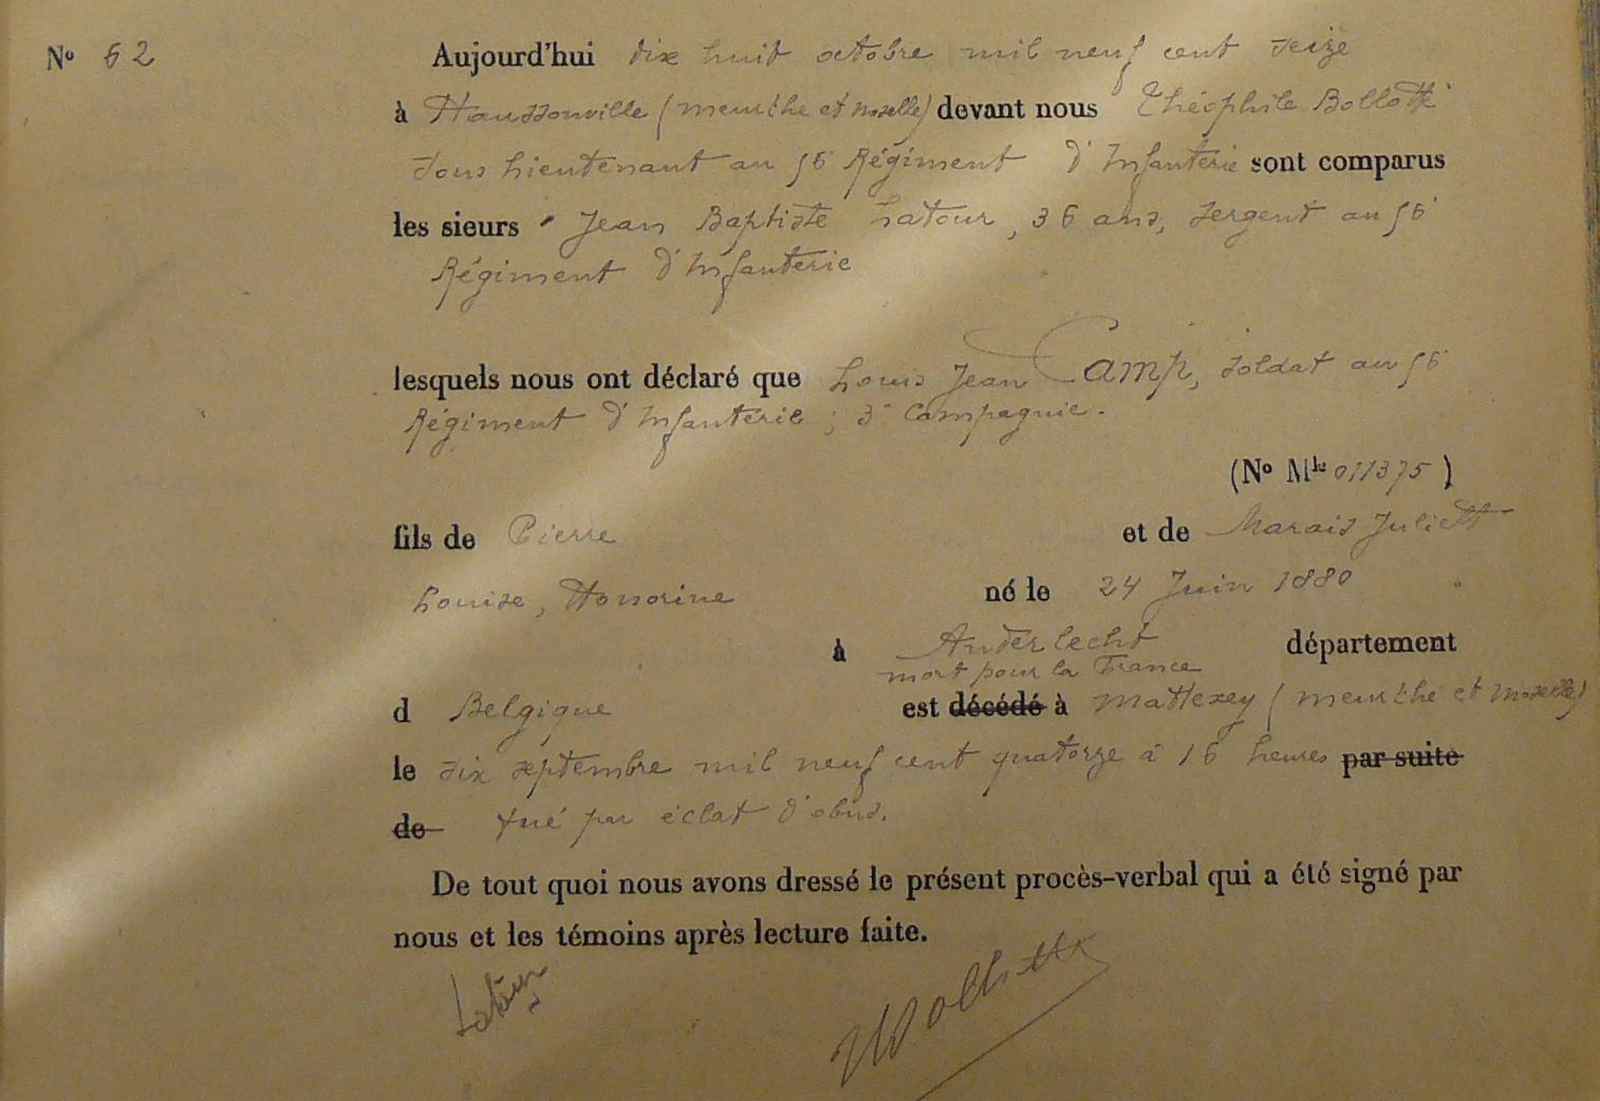 No 62
Aujourd'hui dix huit octobre mil neuf cent seize
à Haussonville (meurthe et moselle) devant nous Théophile Bollotte
sous Lieutenant au 56 Régiment d'Infanterie sont comparus
les sieurs Jean Baptiste Latour, 36 ans, sergent au 56
Régiment d'Infanterie
lesquels nous ont déclaré que Louis Jean Camp, soldat au 56
Régiment d'Infanterie ; 3e Compagnie.
(No Mle 011375)
fils de Pierre et de Marais Juliette
Louise, Honorine né le 24 Juin 1880
à Anderlecht département
mort pour la France
d Belgique est décédé à Mattexey (meurthe et moselle)
le dix septembre mil neuf cent quatorze à 16 heures par suite
de tué par éclat d'obus.
De tout quoi nous avons dressé le présent procès-verbal qui a été signé par
nous et les témoins après lecture faite.
Latour